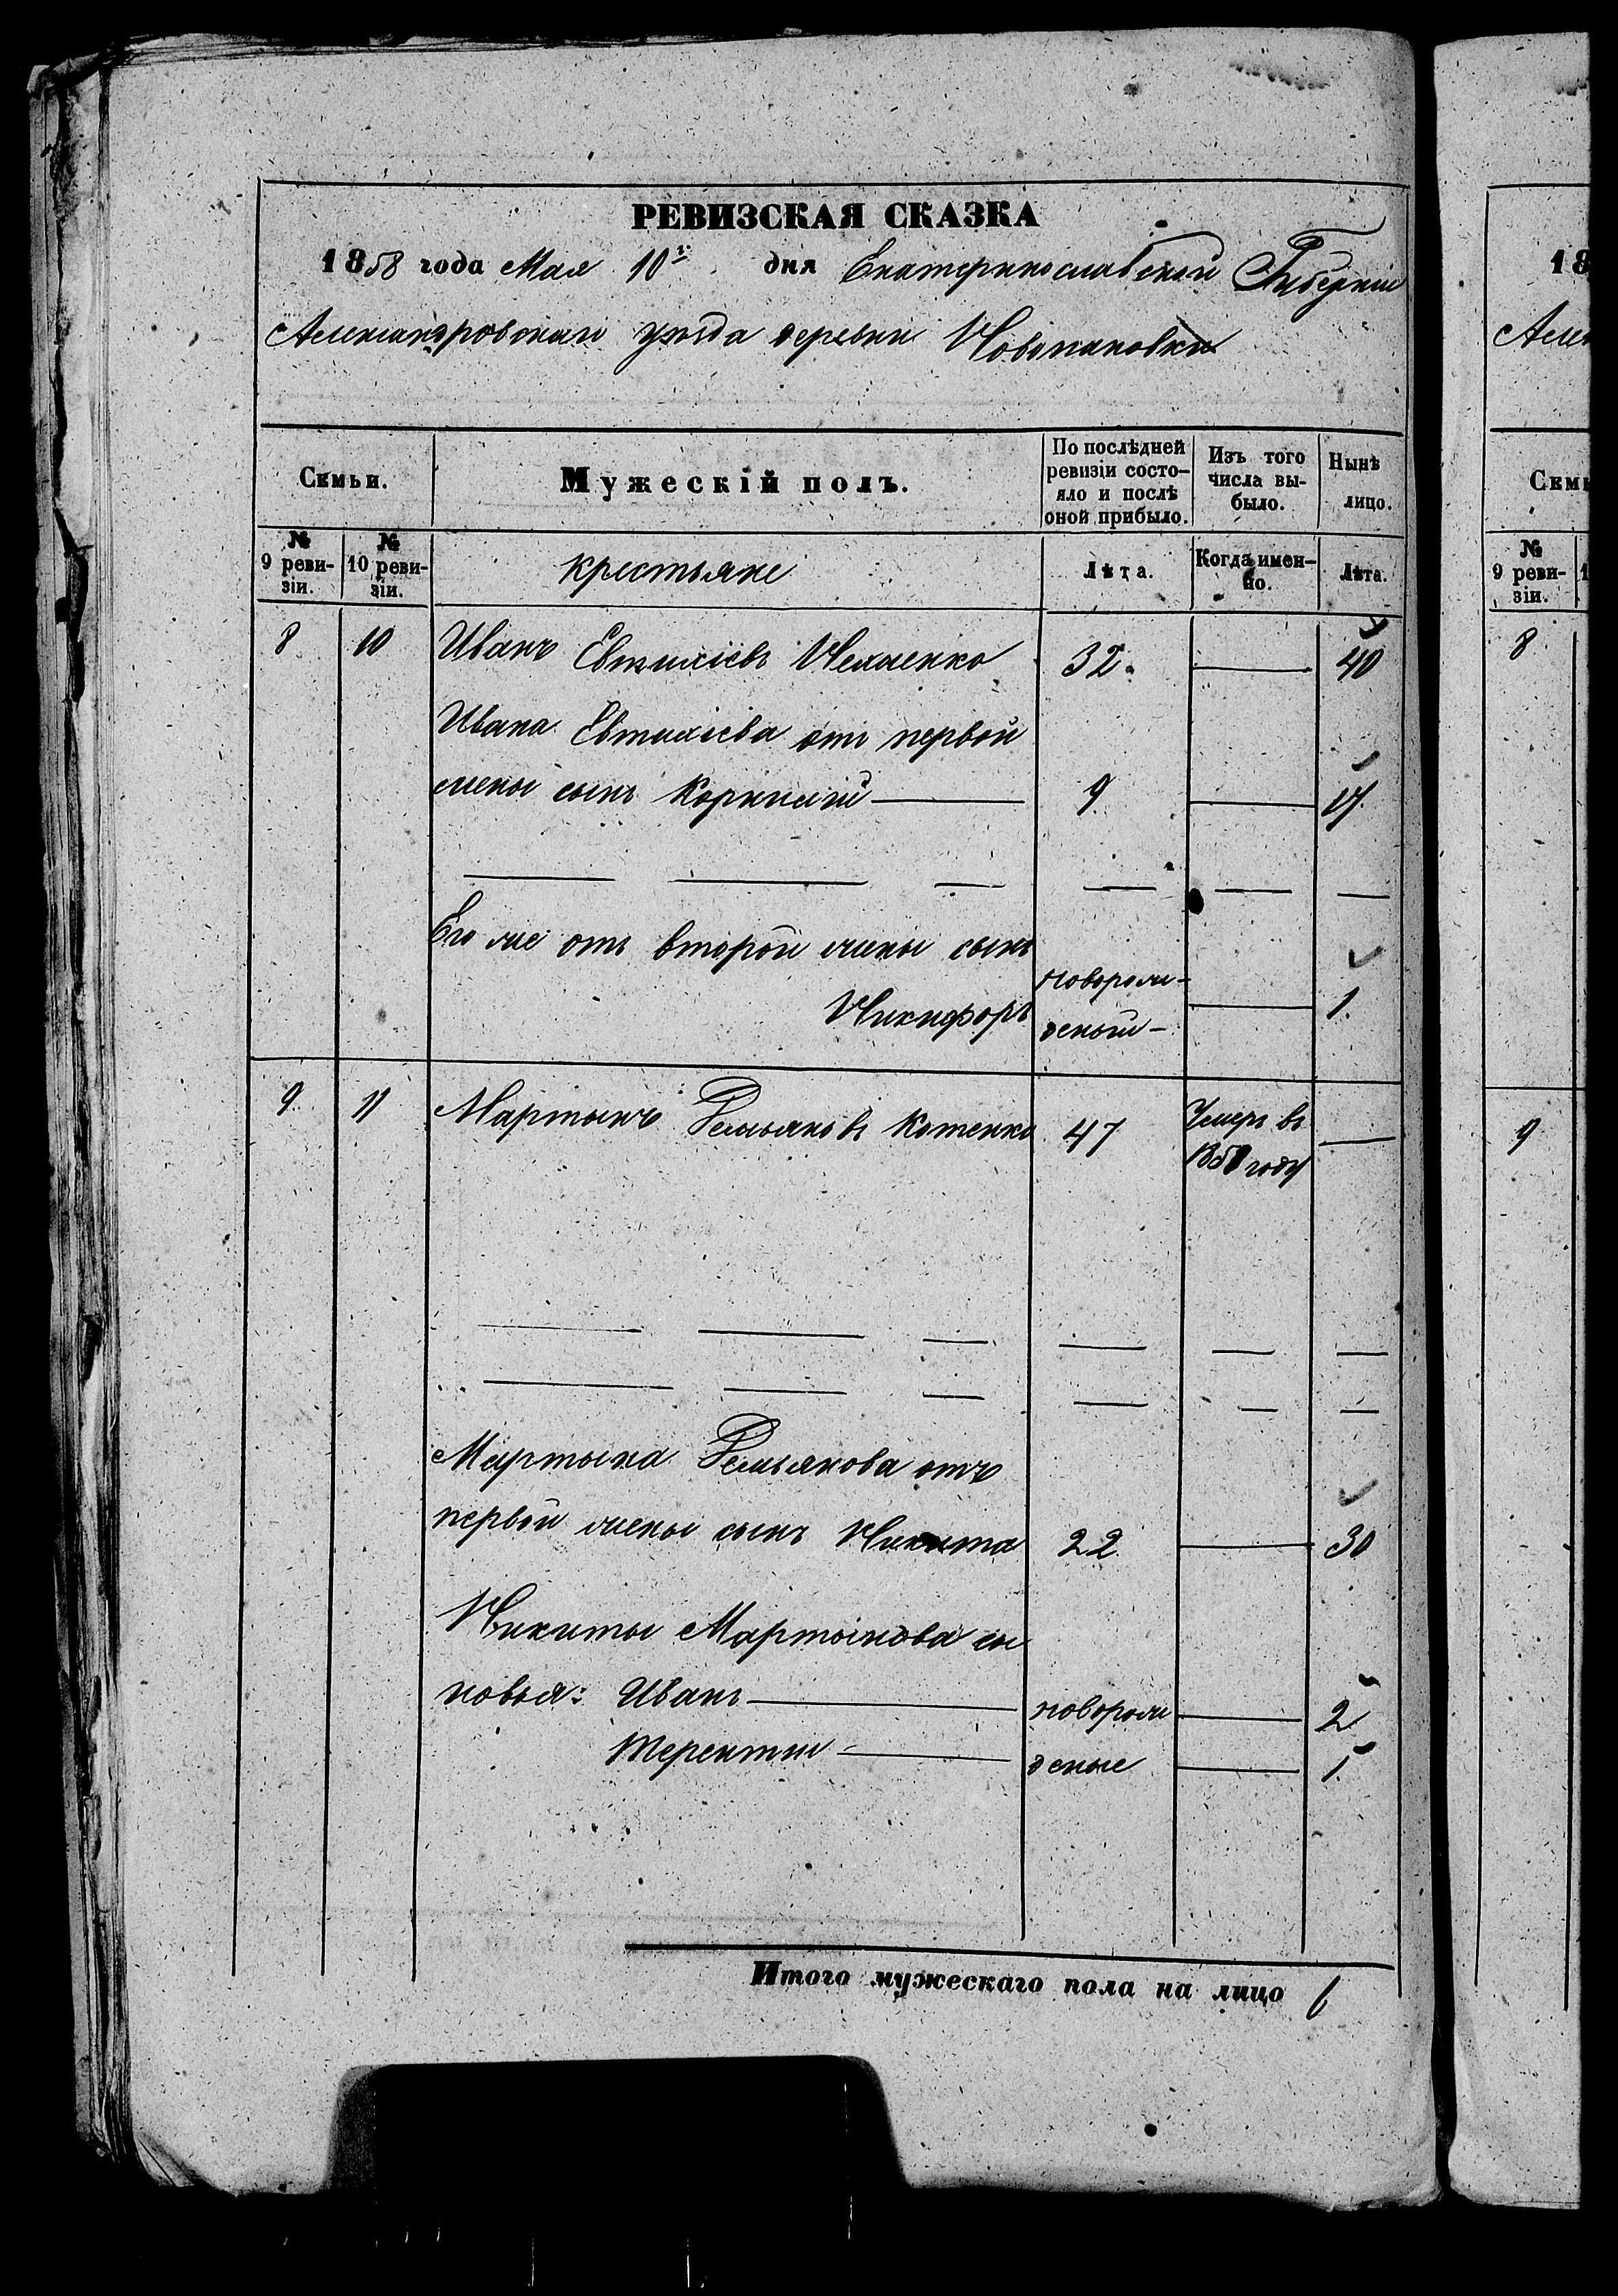 РЕВИЗСКАЯ СКАЗКА
1858 года Мая 10го дня Екатеринославской Губерніи
Александровскаго уѣзда деревни Новопановки
Семьи.
Мужескій полъ.
По послѣдней ревизіи состо-
яло и послѣ
оной прибыло.
Изъ того
числа вы-
было.
Нынѣ
лицо.
№
9 реви-
зіи.
№
10 реви-
зіи.
крестьяне
Лѣта.
Когда имен-
но.
Лѣта.
8 10 Иванъ Евтихіевъ 32 40
Ивана Евтихіева отъ первой
жены сынъ Корнилій 9 17
Его же отъ второй жены сынъ
Никифоръ новорож-
денный 1.
9 11 Мартынъ Демьяновъ Котенко 47 Умеръ въ
году
Мартына Демьянова отъ
первой жены сынъ Никита 22 30
Никиты Мартынова сы
новья: Иванъ новорож 2
Терентій деные 1
Итого мужескаго пола на лицо 6
18
Семь
№
9 реви-
зіи.
8
9